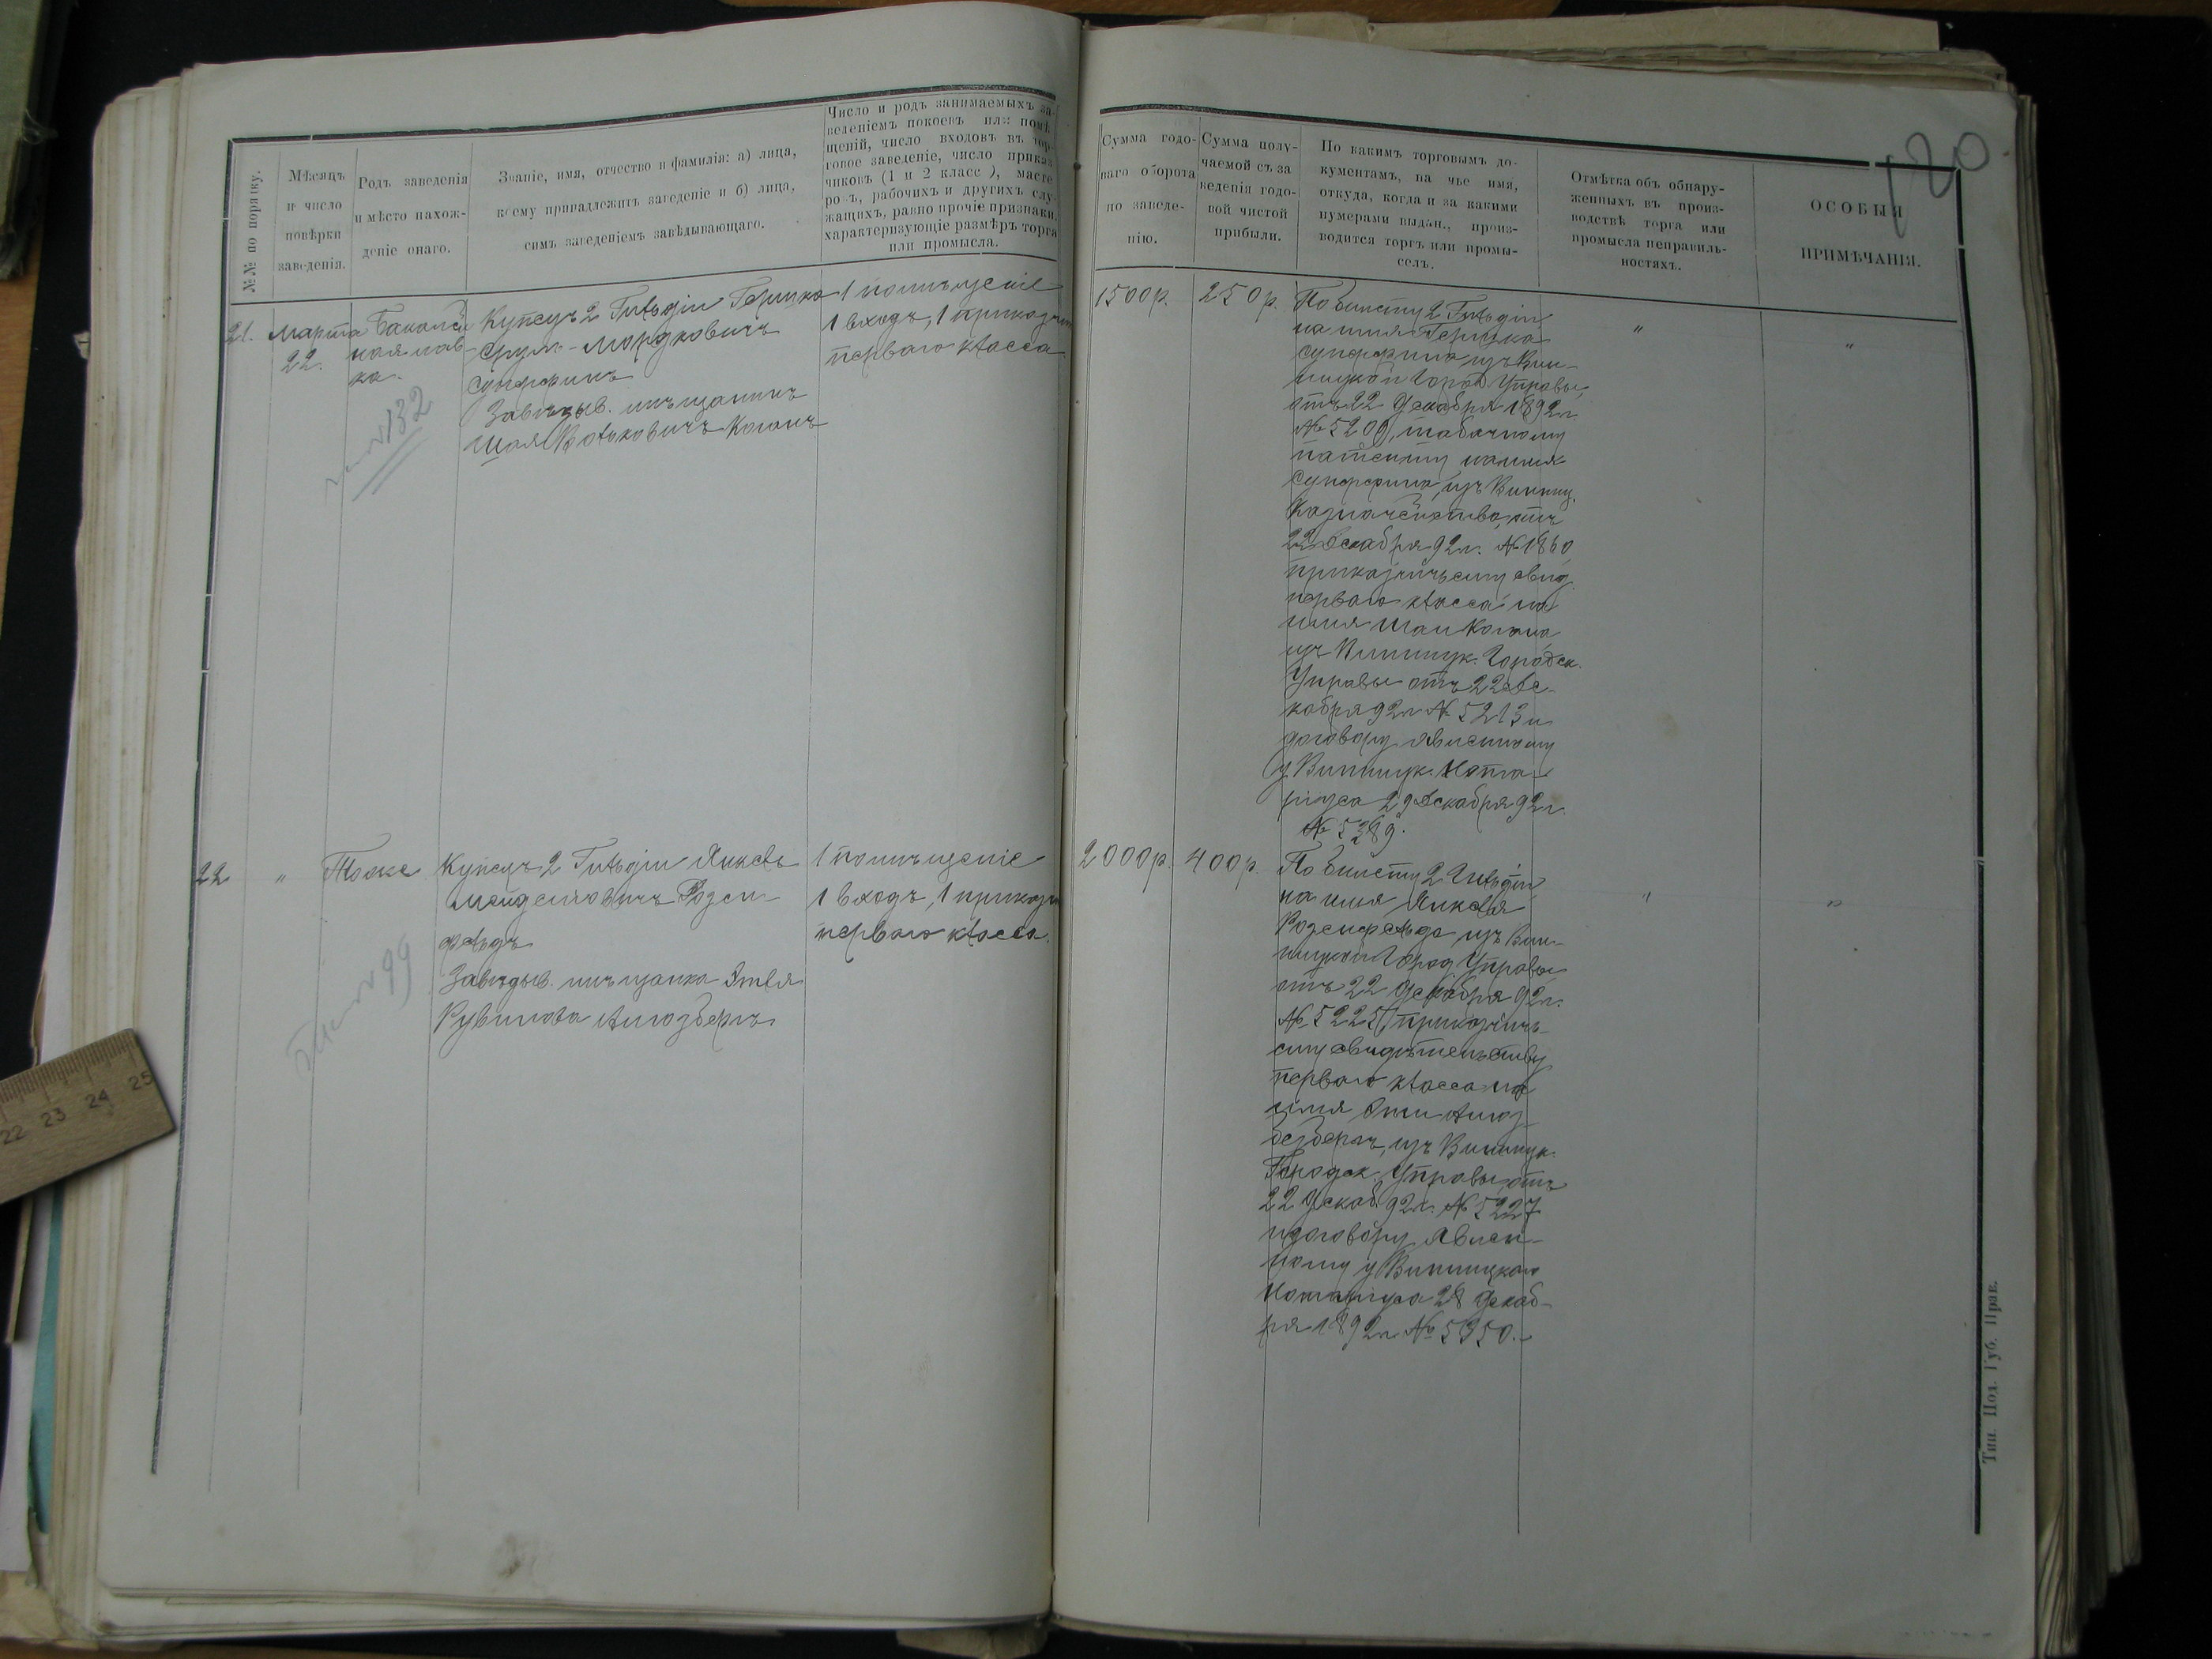 №№ по порядку.
Мѣсяцъ
и число
повѣрки
заведенія.
Родъ заведенія
и мѣсто нахож-
деніе онаго.
Званіе, имя, отчество и фамилія: а) лица,
коему принадлежитъ заведеніе и б) лица,
симъ заведеніемъ завѣдывающаго.
Число и родъ занимаемыхъ за-
веденіемъ покоевъ или помѣ-
щеній, число входовъ въ тор-
говое заведеніе, число приказ-
чиковъ (1 и 2 класс ), масте
ровъ, рабочихъ и другихъ слу-
жащихъ, равно прочіе признаки,
характеризующіе размѣръ торга
или промысла.
Сумма годо-
ваго оборота
по заведе-
нію.
Сумма полу-
чаемой съ за
веденія годо-
вой чистой
прибыли.
По какимъ торговымъ до-
кументамъ, на чье имя,
откуда, когда и за какими
нумерами выдан., произ-
водится торгъ или промы-
селъ.
Отмѣтка объ обнару-
женныхъ въ произ-
водствѣ торга или
промысла неправиль-
ностяхъ.
ОСОБЫЯ
ПРИМѢЧАНІЯ.
120
21.
Марта
22.
Бакалей
ная лав-
ка.
132
Купецъ 2 Гильдіи Гершко
Срул-Мордковичъ
Супфинъ
Завѣдыв. мѣщанинъ
Шая Волковичъ Коганъ
1 помѣщеніе
1 входъ, 1 приказчик
перваго класса
1500р.
250р.
По билету 2 Гильдіи
на имя Гершка
из Вин-
ницкой Город. Управы,
отъ 22 Декабря 1892г.
№ 5209, табачному
патенту на имя
изъ Винниц.
Казначейства, отъ
22 Декабря 92г. № 1860,
прикащичьему свид.
перваго класса на
имя Шаи Когана
изъ Винницк. Городск.
Управы отъ 22 Де-
кабря 92г № 5213 и
договору явленному
у Винницк. Нота-
ріуса 29 Декабря 92г.
№ 5389.
"
"
22
"
Тоже
99
Купецъ 2 Гильдіи Янкель
Мендельовичъ Розен-
фельдъ
Завѣдыв. мѣщанка Этля
Рувинова
1 помѣщеніе
1 входъ, 1 приказч
перваго класса.
2000р.
400р.
По билету 2 Гильдіи
на имя Янкеля
Розенфельда изъ Вин-
ницкой Город Управы
отъ 22 Декабря 92г.
№ 5225, прикащичь-
ему свидѣтельству
перваго класса на
имя
изъ Винницк.
Городск. Управы, отъ
22 Декаб. 92г. № 5227
и договору явлен-
ному у Винницкаго
Нотаріуса 28 Декаб-
ря 1892г № 5350.
"
"
Тип. Под. Губ. Прав.
22 23 24 25